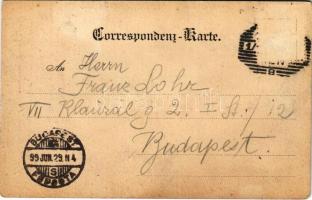 Correspondenz-Karte.
An Herrn
Franz Lohr
VII Klauzál g. 2. I St. / 12
Budapest.
BUDAPEST
99 JUN. 29. N 4
S
8